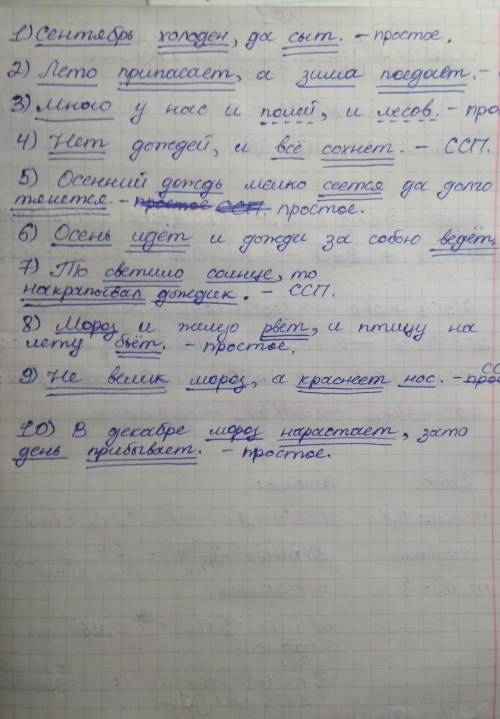 1) Сентябрь холоден, да сыт. - простое.
2) Лето припасает, а зима поедает. -
3) Много у нас и полей, и лесов. - прос
4) Нет дождей, и всё сохнет. - ССП.
5) Осенний дождь мелко сеется да долго
тянется. - простое ССП. простое.
6) Осень идёт и дожди за собою ведёт.
7) То светило солнце, то
накрапывал дождик. - ССП.
8) Мороз и железо рвёт, и птицу на
лету бьёт. - простое.
9) Не велик мороз, а краснеет нос. - прос СС
10) В декабре мороз нарастает, зато
день прибывает. - простое.